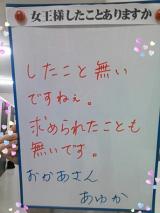 女王様したことありますか
したこと無い
ですねぇ。
求められたことも
無いです。
おかあさん
あゆか